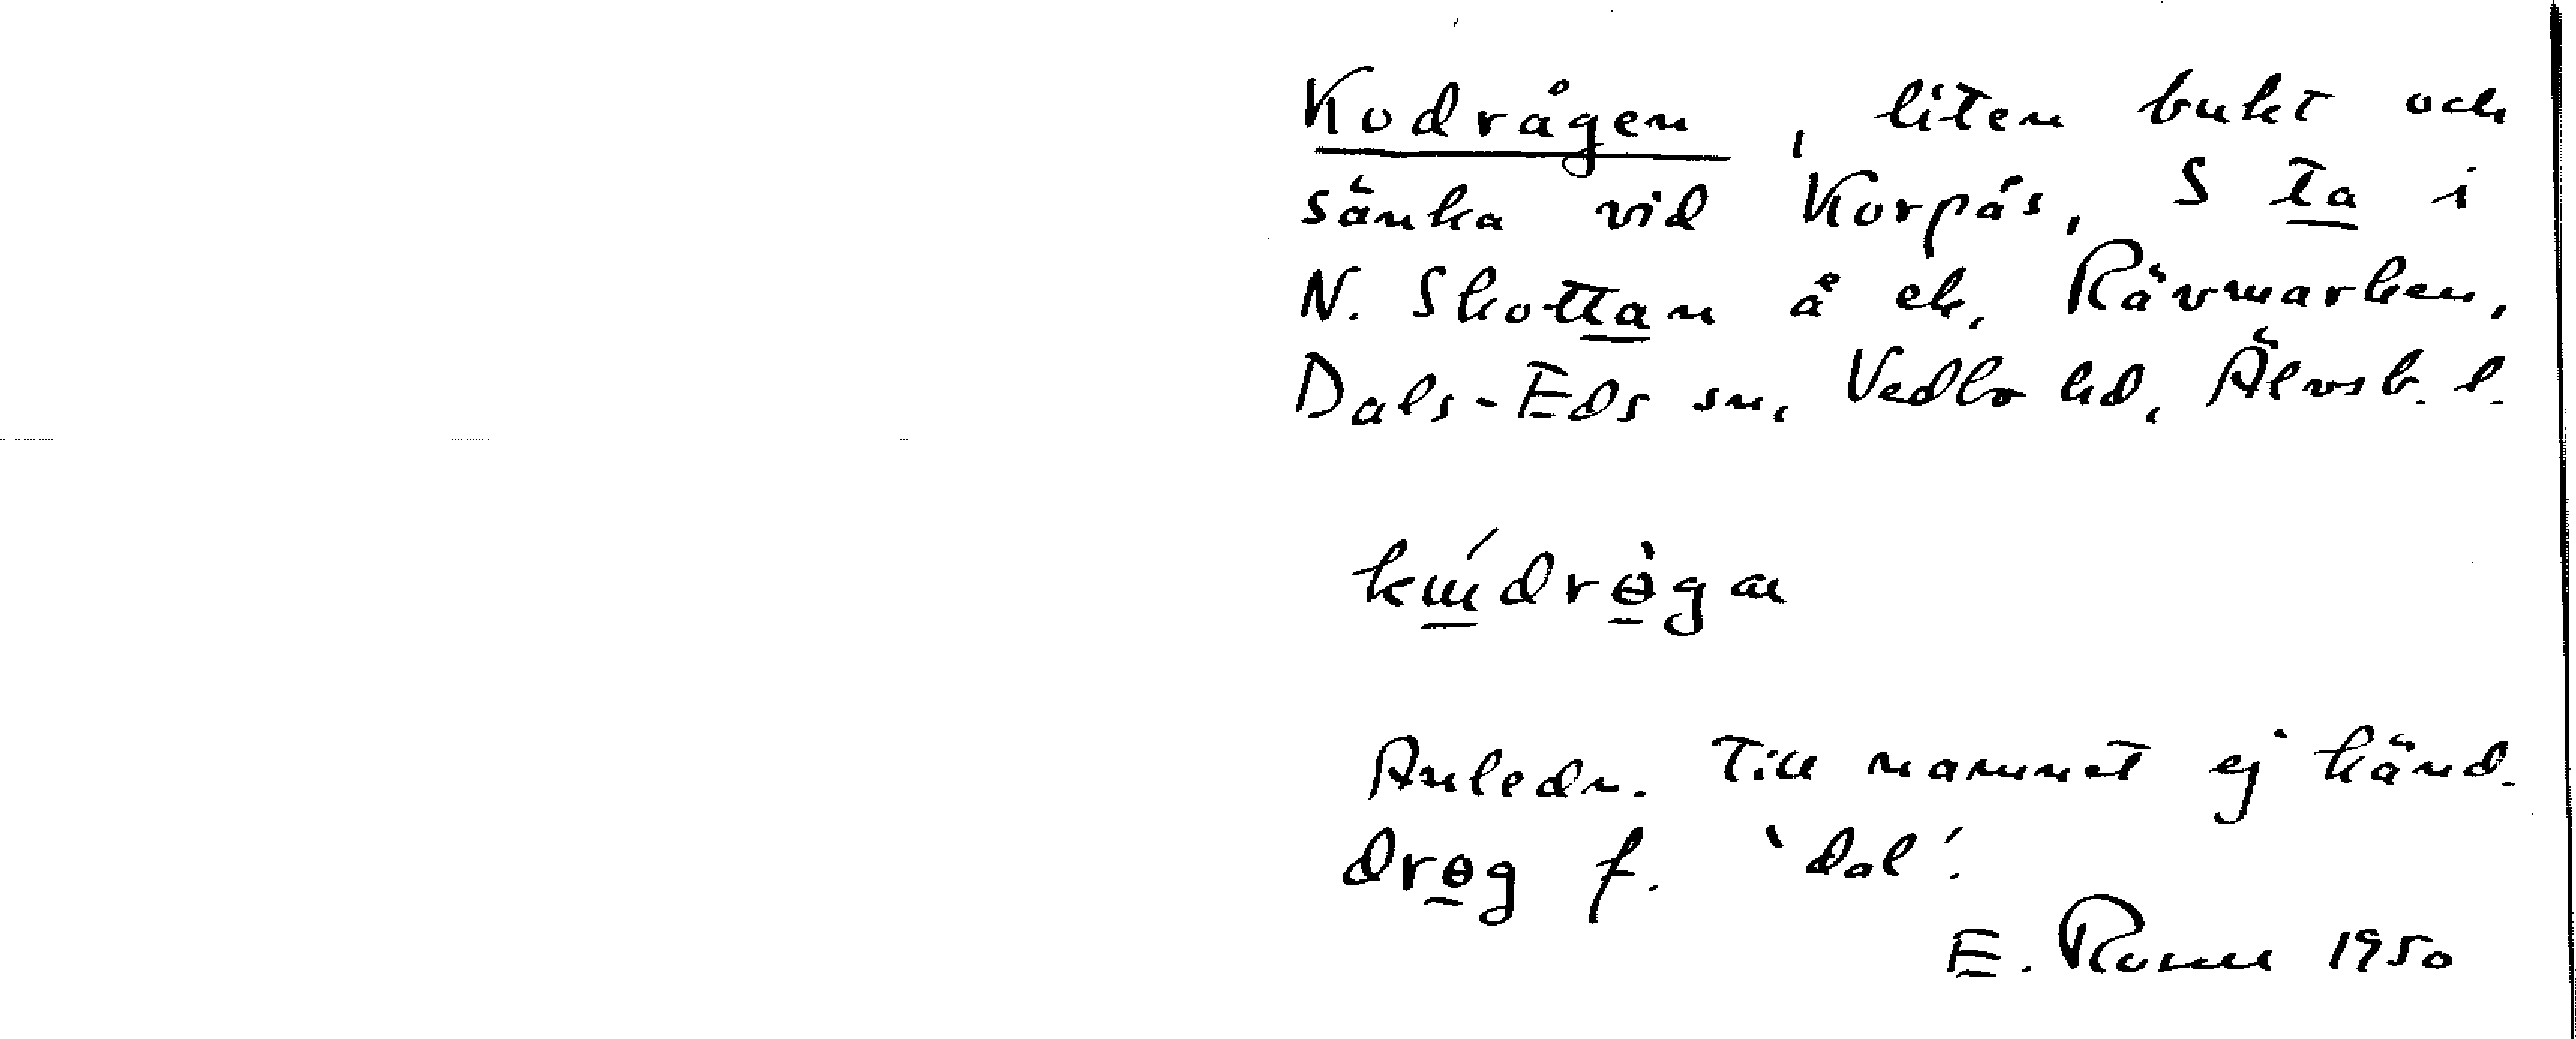 Kodrågen, liten bukt och
sänka vid Korpås, S ta i
N. Skottan å ek. Rävmarken,
Dals-Eds sn, Vedbo hd, Älvsb. l.
kɯ́drɵ̀gæ
Anledn. till namnet ej känd.
drɵg f. ‵dal′.
E. 1950